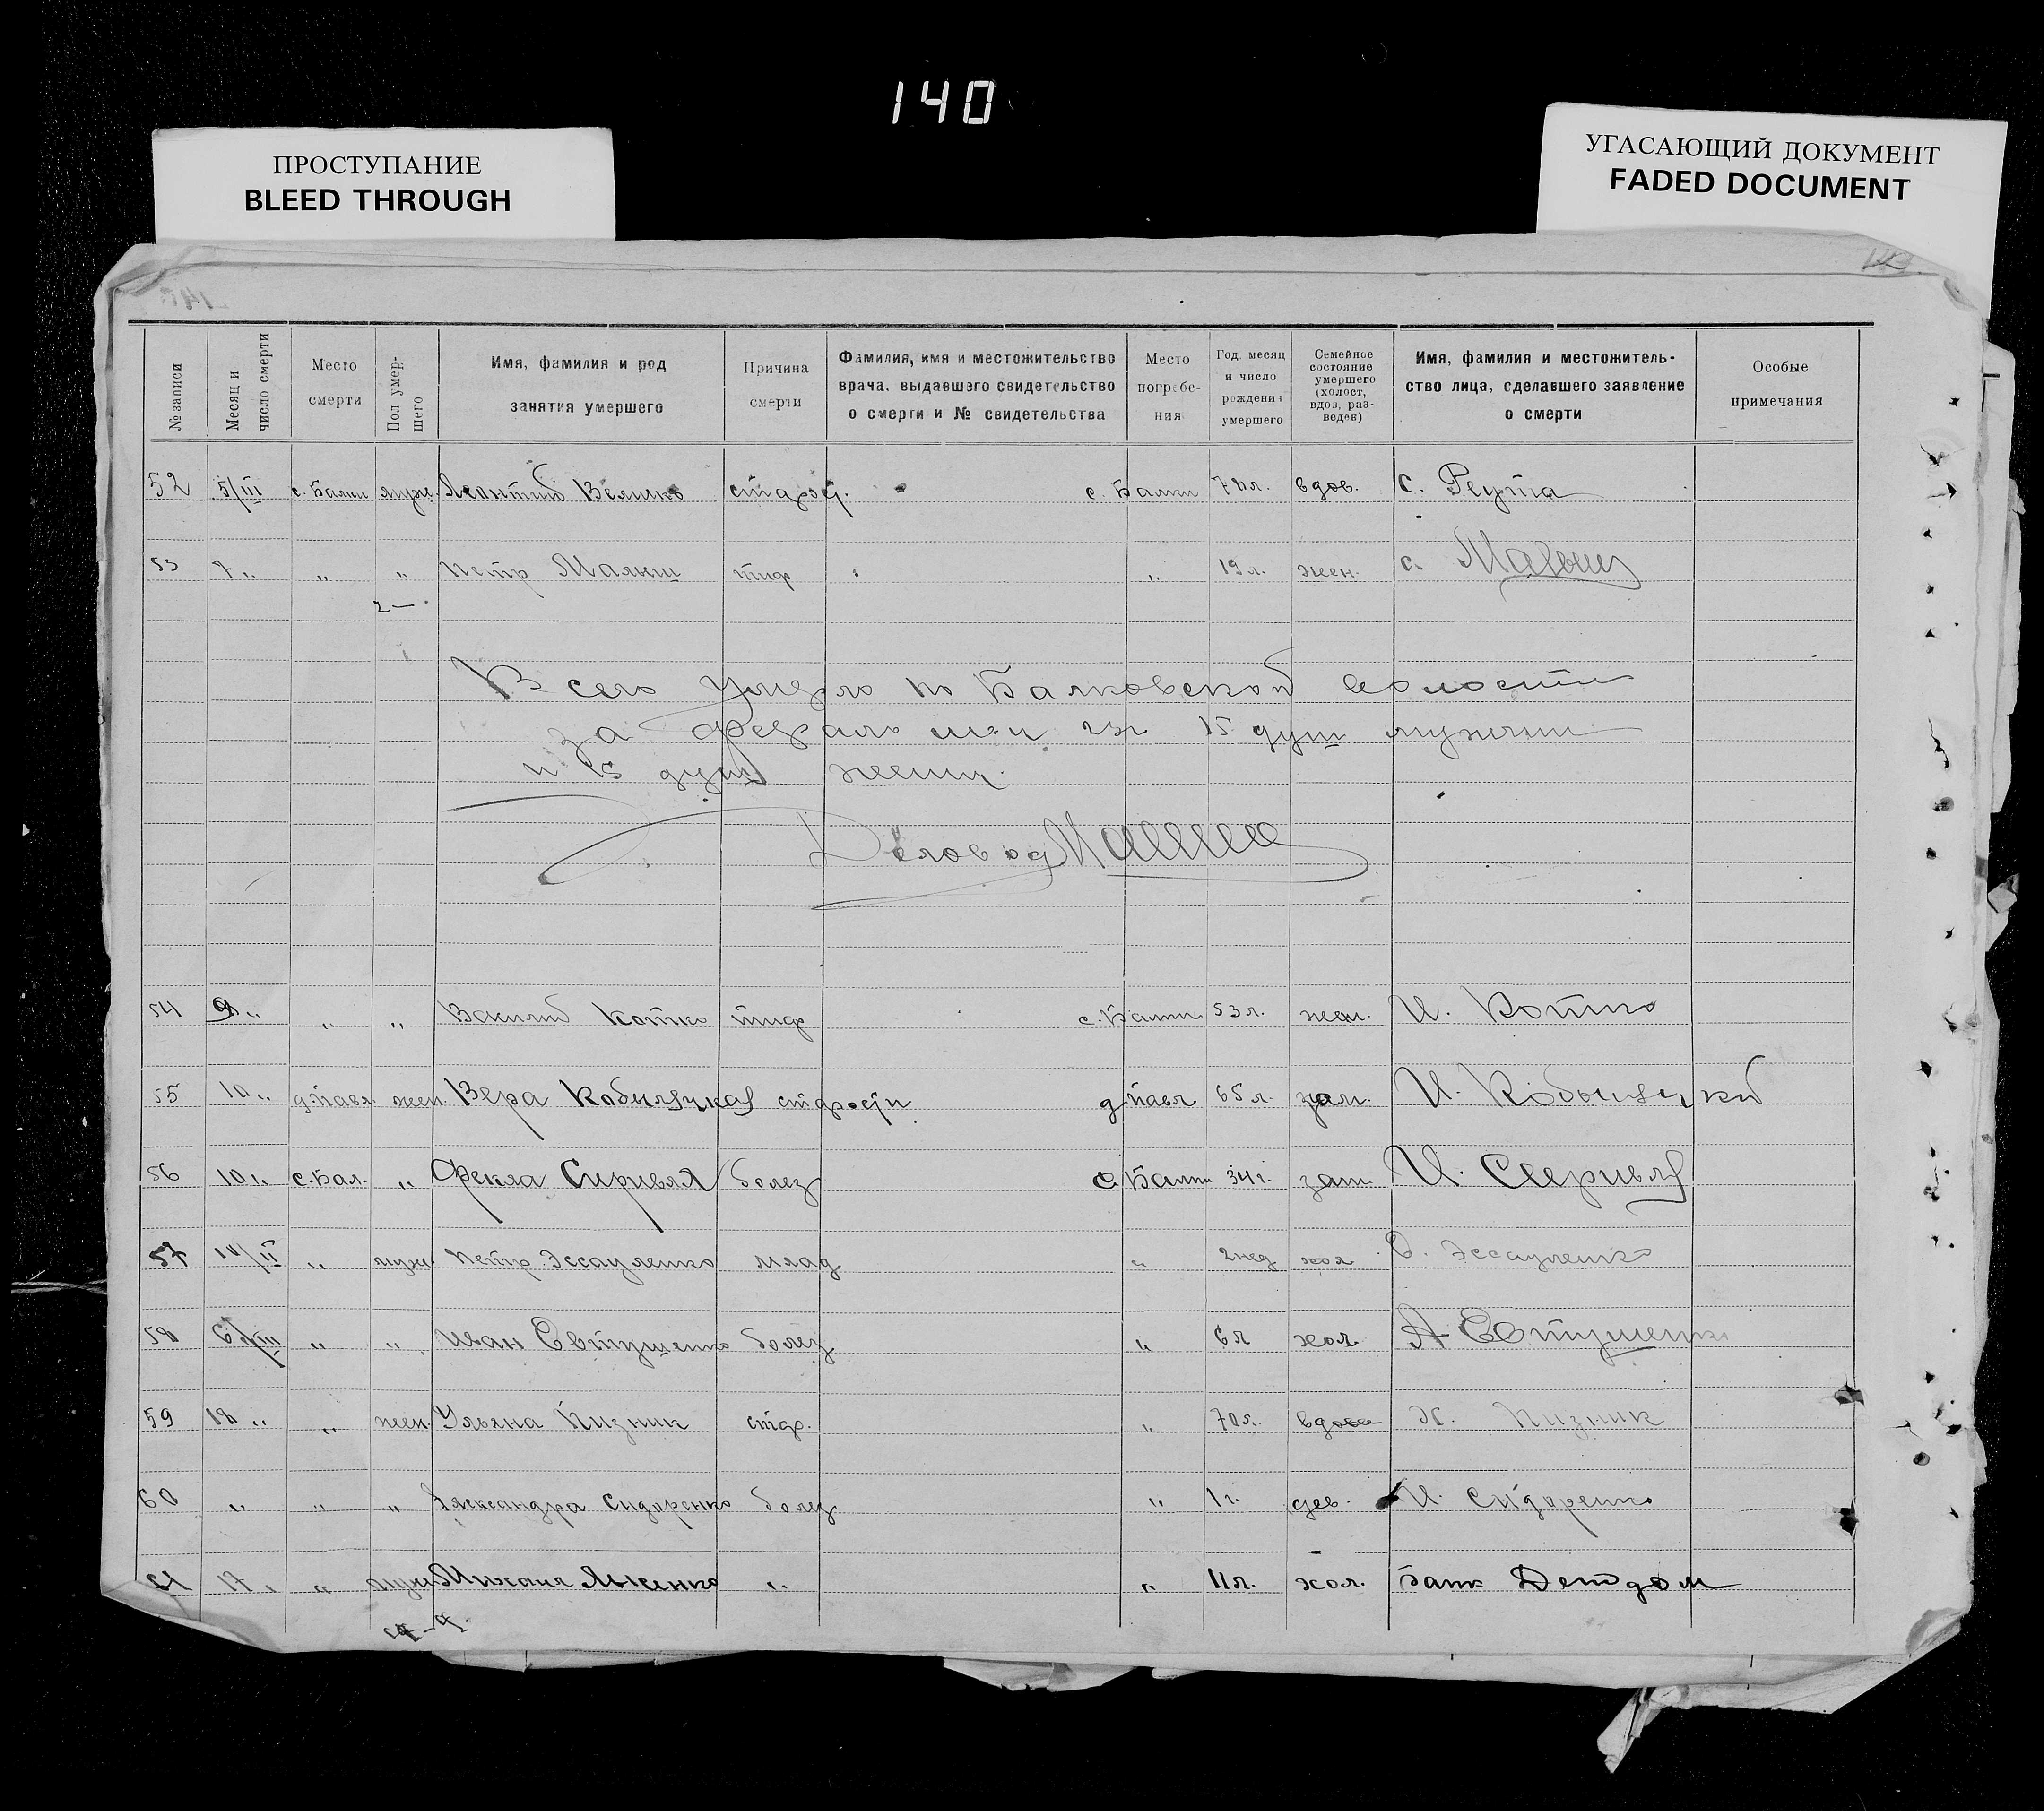 140
ПРОСТУПАНИЕ
BLEED THROUGH
УГАСАЮЩИЙ ДОКУМЕНТ
FADED DOCUMENT
№ записи
Месяц и число смерти
Место смерти
Пол умер-шего
Имя, фамилия и род занятия умершего
Причина смерти
Фамилия, имя и местожительство врача, выдавшего свидетельство о смерти и № свидетельства
Место погребе-ния
Год, месяц и число рождения умершего
Семейное состояние умершего (холост, вдов, раз-веден)
Имя, фамилия и местожитель-ство лица, сделавшего заявление о смерти
Особые примечания
52 5/III с. Балки муж. Леонтий Велико старост. с. Балки 70 л. вдов. С. Реута
53 7 „ „ „ Петр Малыш тиф „ 19 л. жен. С. Малыш
2 —
Всего умерло по Балковской волости
за февраль 15 душ мужчин
и 15 душ женщ.
Деловод
54 9 „ „ „ Василий Котко тиф с. Балки 53 л. жен. И. Котко
55 10 „ д. Павл. жен. Вера Кобыляцкая старости д. Павл 65 л. зам. И. Кобыляцкий
56 10 „ с. Бал. „ Фекла Сиривля болез с. Балки 34 г. зам.
57 14/II „ муж. Петр Эссауленко млад „ 2 нед хол О. Эссауленко
58 6/III „ „ Иван Евтушенко болез „ 6 л хол А Евтушенко
59 18 „ „ жен. Ульяна Пизник стар. „ 70 л. вдова Х. Пизник
60 „ „ „ Александра Сидоренко болез „ 1 г. дев. И. Сидоренко
61 17 „ „ муж Михаил Лысенко „ „ 11 л. хол. Балк Детдом
4-4